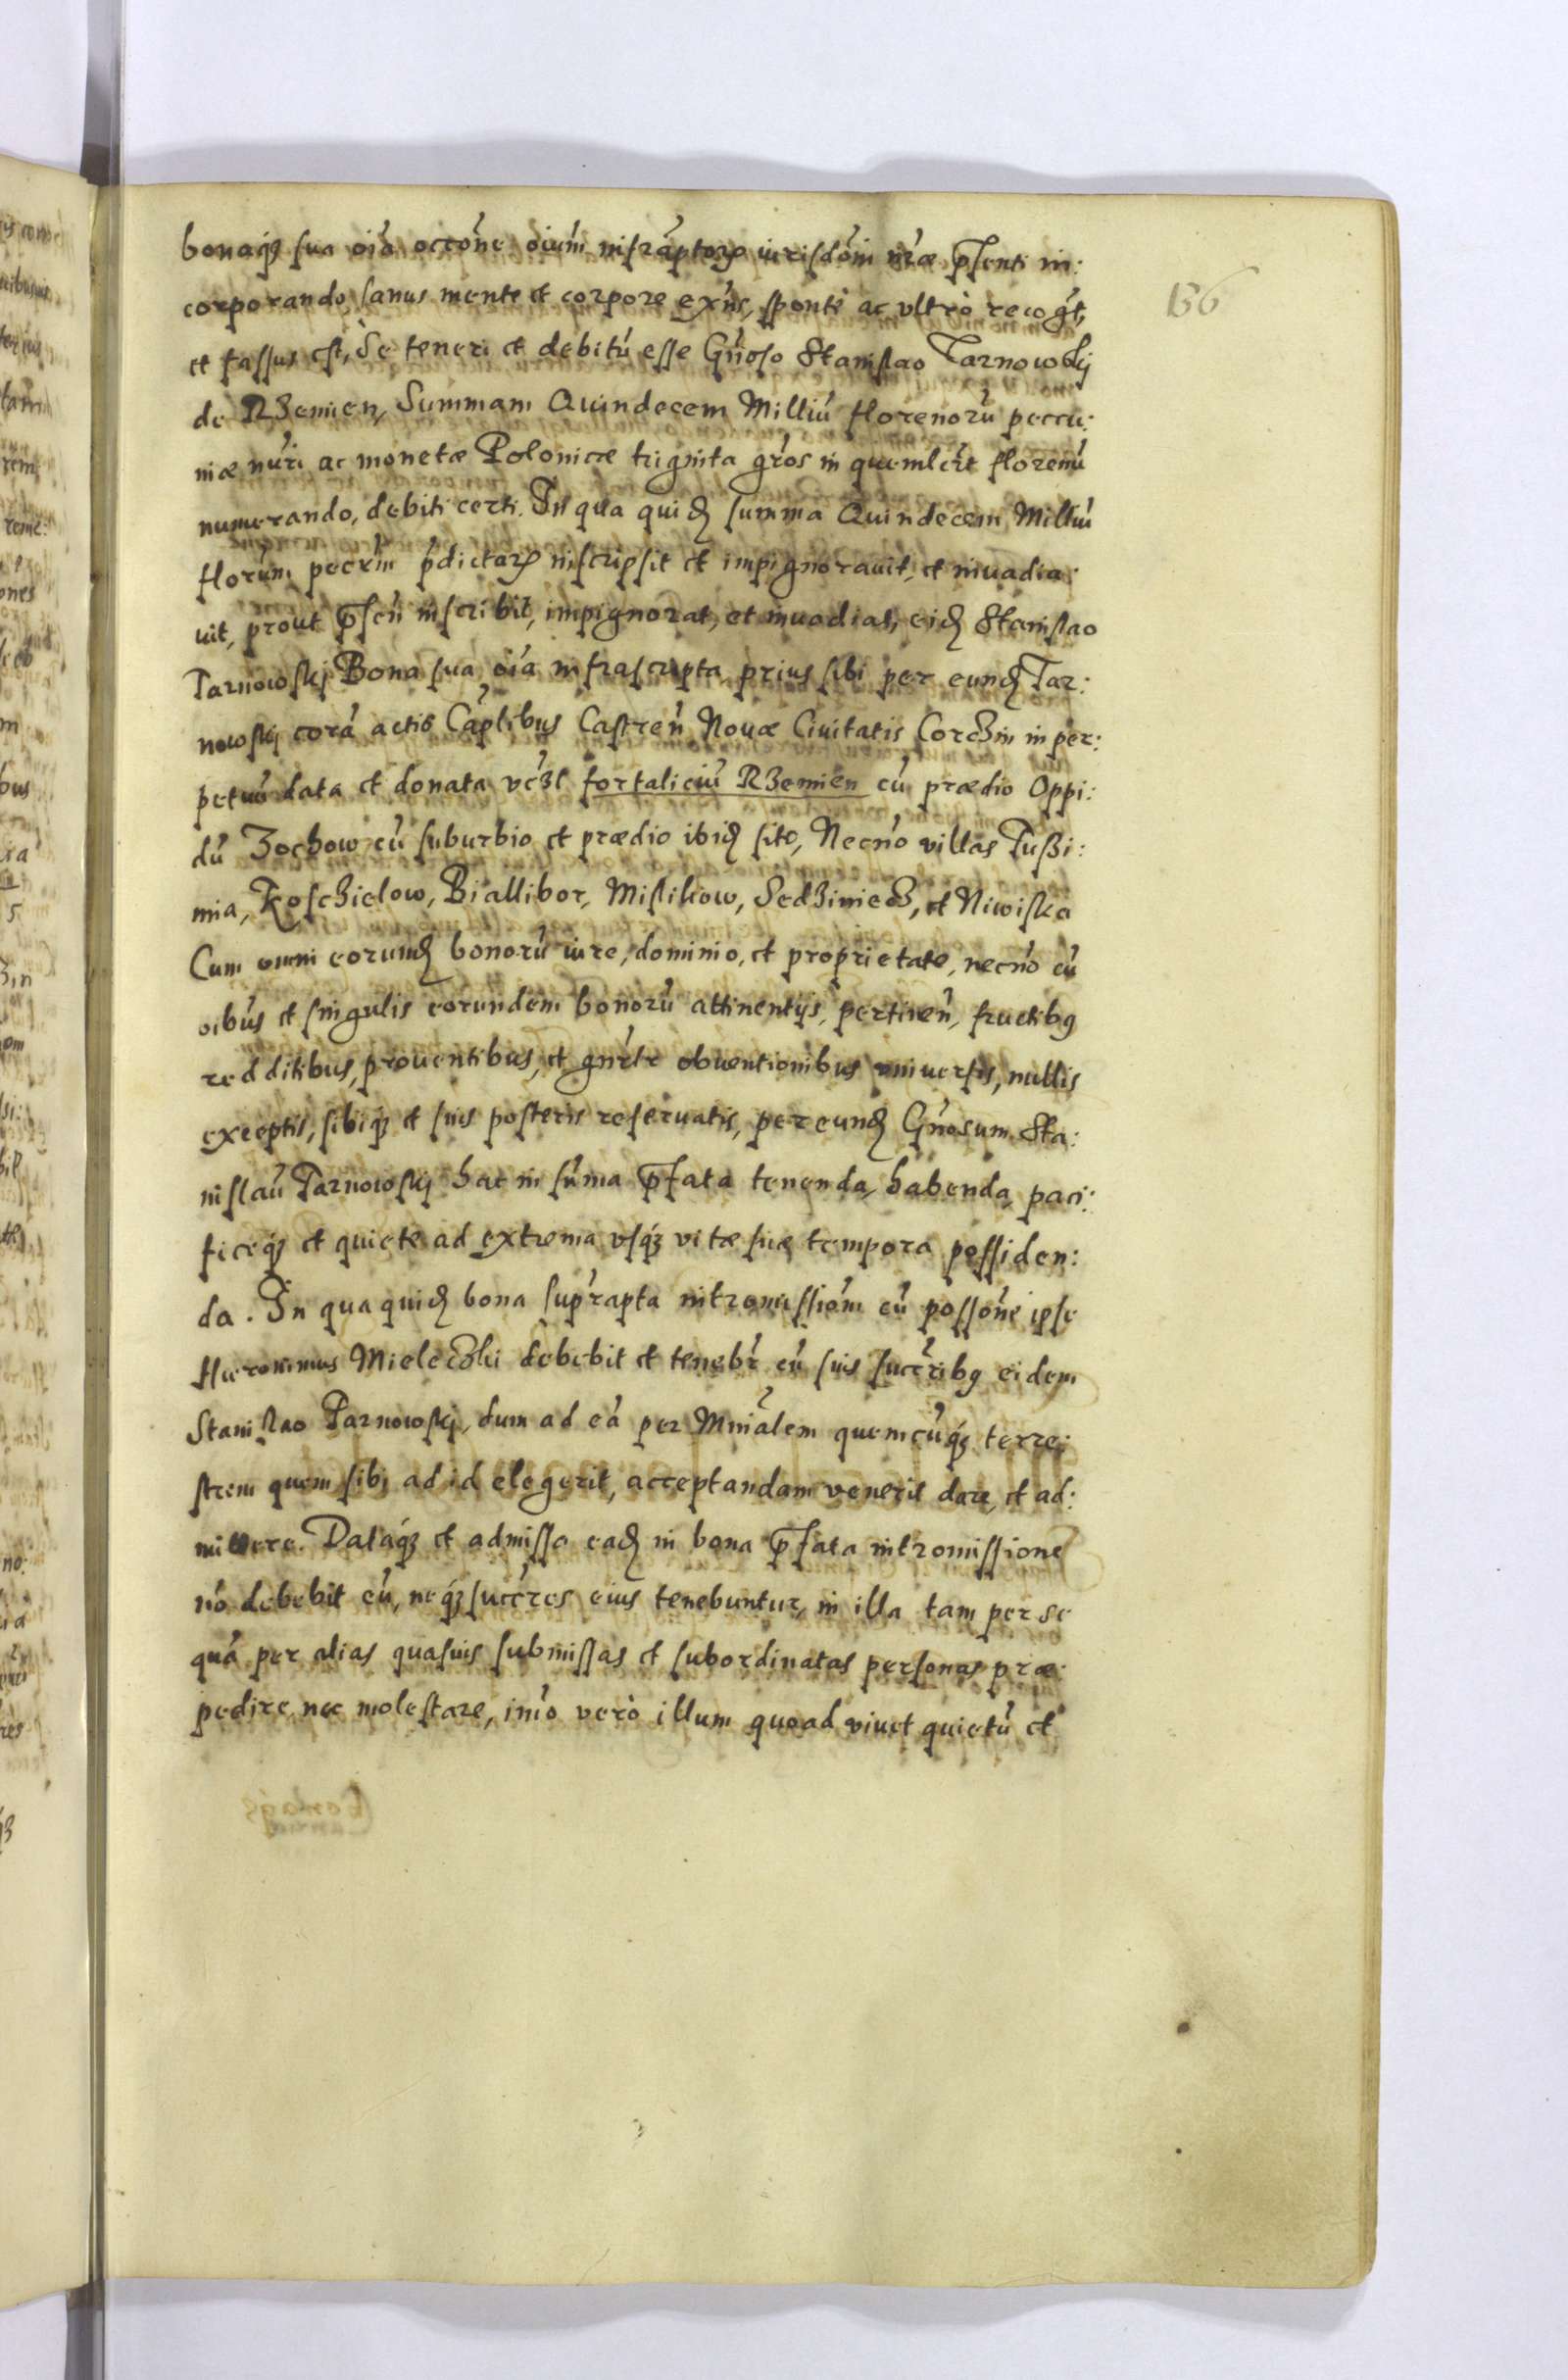 156
bonaqȝ sua oiā occōne oium infraptorꝝ iurisdōni nrae pͬsenti in:
corporando, sanus mente et corpore exn̄s, sponte ac vltrò recogt,
et fassus est, Se teneri et debitū esse Gn̄oso Stanislao Tarnowskj
de Rzemien, Summam Quindecem Milliū florenorū peccu:
niæ nūri ac monetæ Polonicæ triginta gros in quemlibt florenū
numerando, debiti certi. In qua quidȝ summa Quindecem Milliū
florum pecrm pdictarꝝ inscripsit et impignorauit, et inuadia:
uit, prout pͬsen̄ inscribit, impignorat, et inuadiat, eidȝ Stanislao
Tarnowskj Bona sua oia infrascripta, prius sibi per eundȝ Tar:
nowskj corā actis Capłibus Castren̄ Nouæ Ciuitatis Corczin in per:
petuū data et donata vczt fortaliciū Rzemien cū prædio Oppi:
dū Zochow cū suburbio et prædio ibidȝ sito, Necnō villas Tuszi:
mia, Koschielow, Biallibor, Mislikow, Sedziniecz, et Niwiska
Cum omni eorundȝ bonorū iure, dominio, et proprietate, necnō cū
oibus et singulis eorundem bonorū attinentijs, pertinen̄, fructibꝯ
redditibus, prouentibus, et gnrlr obuentionibus vniuersis, nullis
exceptis, sibiqȝ et suis posteris reseruatis, per eundȝ Gn̄osum Sta:
nislaū Tarnowskj hac in sum̄a pͬfata tenenda, habenda, paci:
ficeqȝ et quiete ad extrema vsqȝ vitæ suæ tempora possiden:
da. In qua quidȝ bona suprapta intromissiom cū possone ipse
Hieronimus Mieleczki debebit et tenebr cū suis succribꝯ eidem
Stanislao Tarnowskj, dum ad eā per Mniālem quemcūqȝ terre:
strem quem sibi ad id elegerit, acceptandam venerit dare, et ad:
mittere. Dataqȝ et admissa eadȝ in bona pͬfata intromissione
nō debebit eū, neqȝ succres eius tenebuntur, in illa tam per se
quā per alias quasuis submissas et subordinatas personas præ:
pedire, nec molestare, im̄o verò illum quoad viuet quietū et